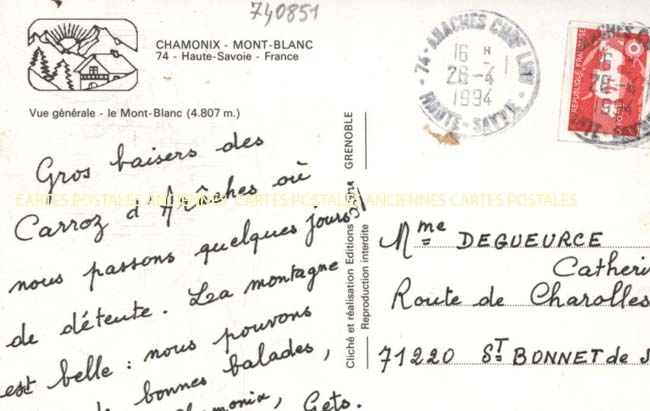 740851
CHAMONIX - MONT-BLANC
74 - Haute-Savoie - France
Vue générale - le Mont-Blanc (4.807 m.)
74 - ARACHES CHEF LIEU
16 H
26-4
1994
HAUTE-SAVOIE
RÉPUBLIQUE FRANÇAISE
Gros baisers des
Carroz d'Arâches où
nous passons quelques jours
de détente. La montagne
est belle : nous pouvons
de bonnes balades,
Chamonix, Gets.
CARTES POSTALES ANCIENNES CARTES POSTALES ANCIENNES CARTES POSTALES
Cliché et réalisation Editions GRENOBLE
Reproduction interdite
Mme DEGUEURCE
Catheri
Route de Charolles
71220 ST BONNET de J